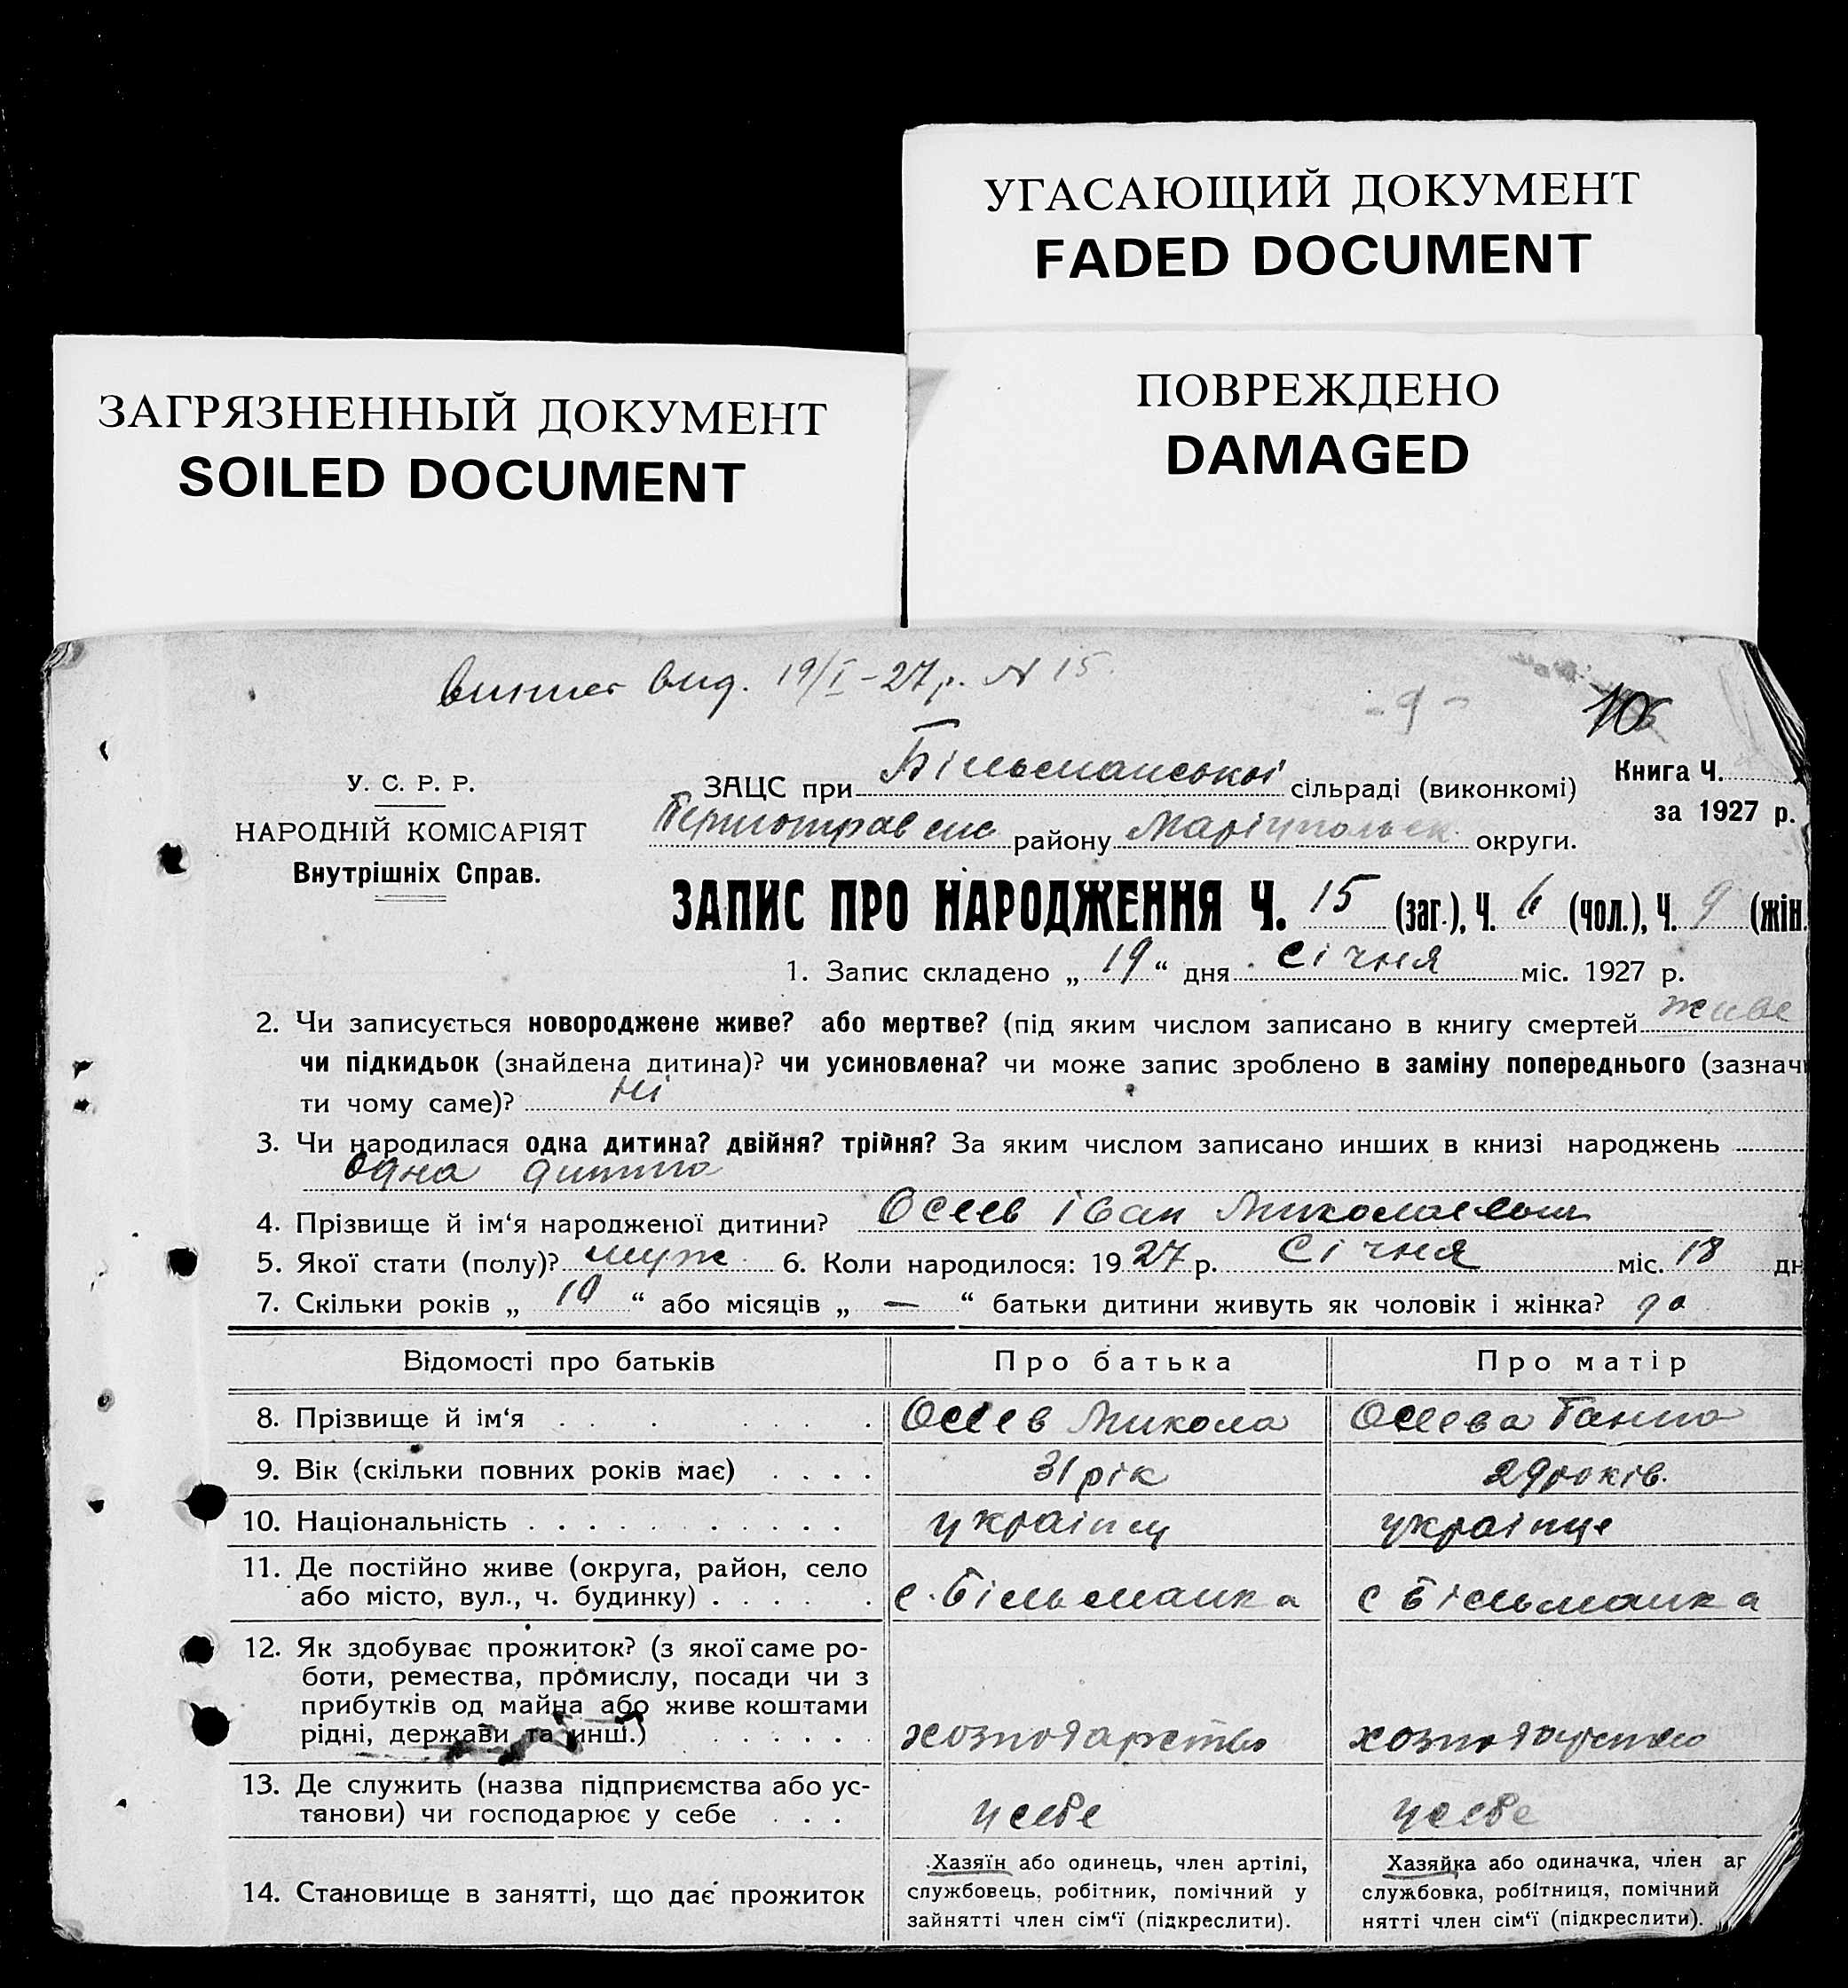 УГАСАЮЩИЙ ДОКУМЕНТ
FADED DOCUMENT
ЗАГРЯЗНЕННЫЙ ДОКУМЕНТ
SOILED DOCUMENT
ПОВРЕЖДЕНО
DAMAGED
вид. 19/I-27р. N 15.
- 9 -
10
У. С. Р. Р.
НАРОДНІЙ КОМІСАРІЯТ
Внутрішніх Справ.
ЗАЦС при Більманської сільраді (виконкомі)
Книга Ч.
за 1927 р.
району Маріупольськ. округи.
ЗАПИС ПРО НАРОДЖЕННЯ Ч. 15 (заг.), Ч. 6 (чол.), Ч. 9 (жін.
1. Запис складено „ 19 “ дня Січня міс. 1927 р.
2. Чи записується новороджене живе? або мертве? (під яким числом записано в книгу смертей живе
чи підкидьок (знайдена дитина)? чи усиновлена? чи може запис зроблено в заміну попереднього (зазначи
ти чому саме)? Ні
3. Чи народилася одна дитина? двійня? трійня? За яким числом записано инших в книзі народжень
Одна дитина
4. Прізвище й ім‘я народженої дитини? Осеев Іван
5. Якої стати (полу)? муж 6. Коли народилося: 1927 р. Січня міс. 18 дн
7. Скільки років „ 10 “ або місяців „ — “ батьки дитини живуть як чоловік і жінка? да
Відомості про батьків Про батька Про матір
8. Прізвище й ім‘я Осеев Микола Осеева Ганна
9. Вік (скільки повних років має) 31 рік 29 років.
10. Національність українц українце
11. Де постійно живе (округа, район, село
або місто, вул., ч. будинку) с. Більманка с Більманка
12. Як здобуває прожиток? (з якої саме ро-
боти, ремества, промислу, посади чи з
прибутків од майна або живе коштами
рідні, держави та инш.) хозподарство хозподарство
13. Де служить (назва підприємства або ус-
танови) чи господарює у себе у себе у себе
14. Становище в занятті, що дає прожиток
Хазяїн або одинець, член артілі,
службовець, робітник, помічний у
зайнятті член сім‘ї (підкреслити).
Хазяйка або одиначка, член ар
службовка, робітниця, помічний
нятті член сім‘ї (підкреслити).